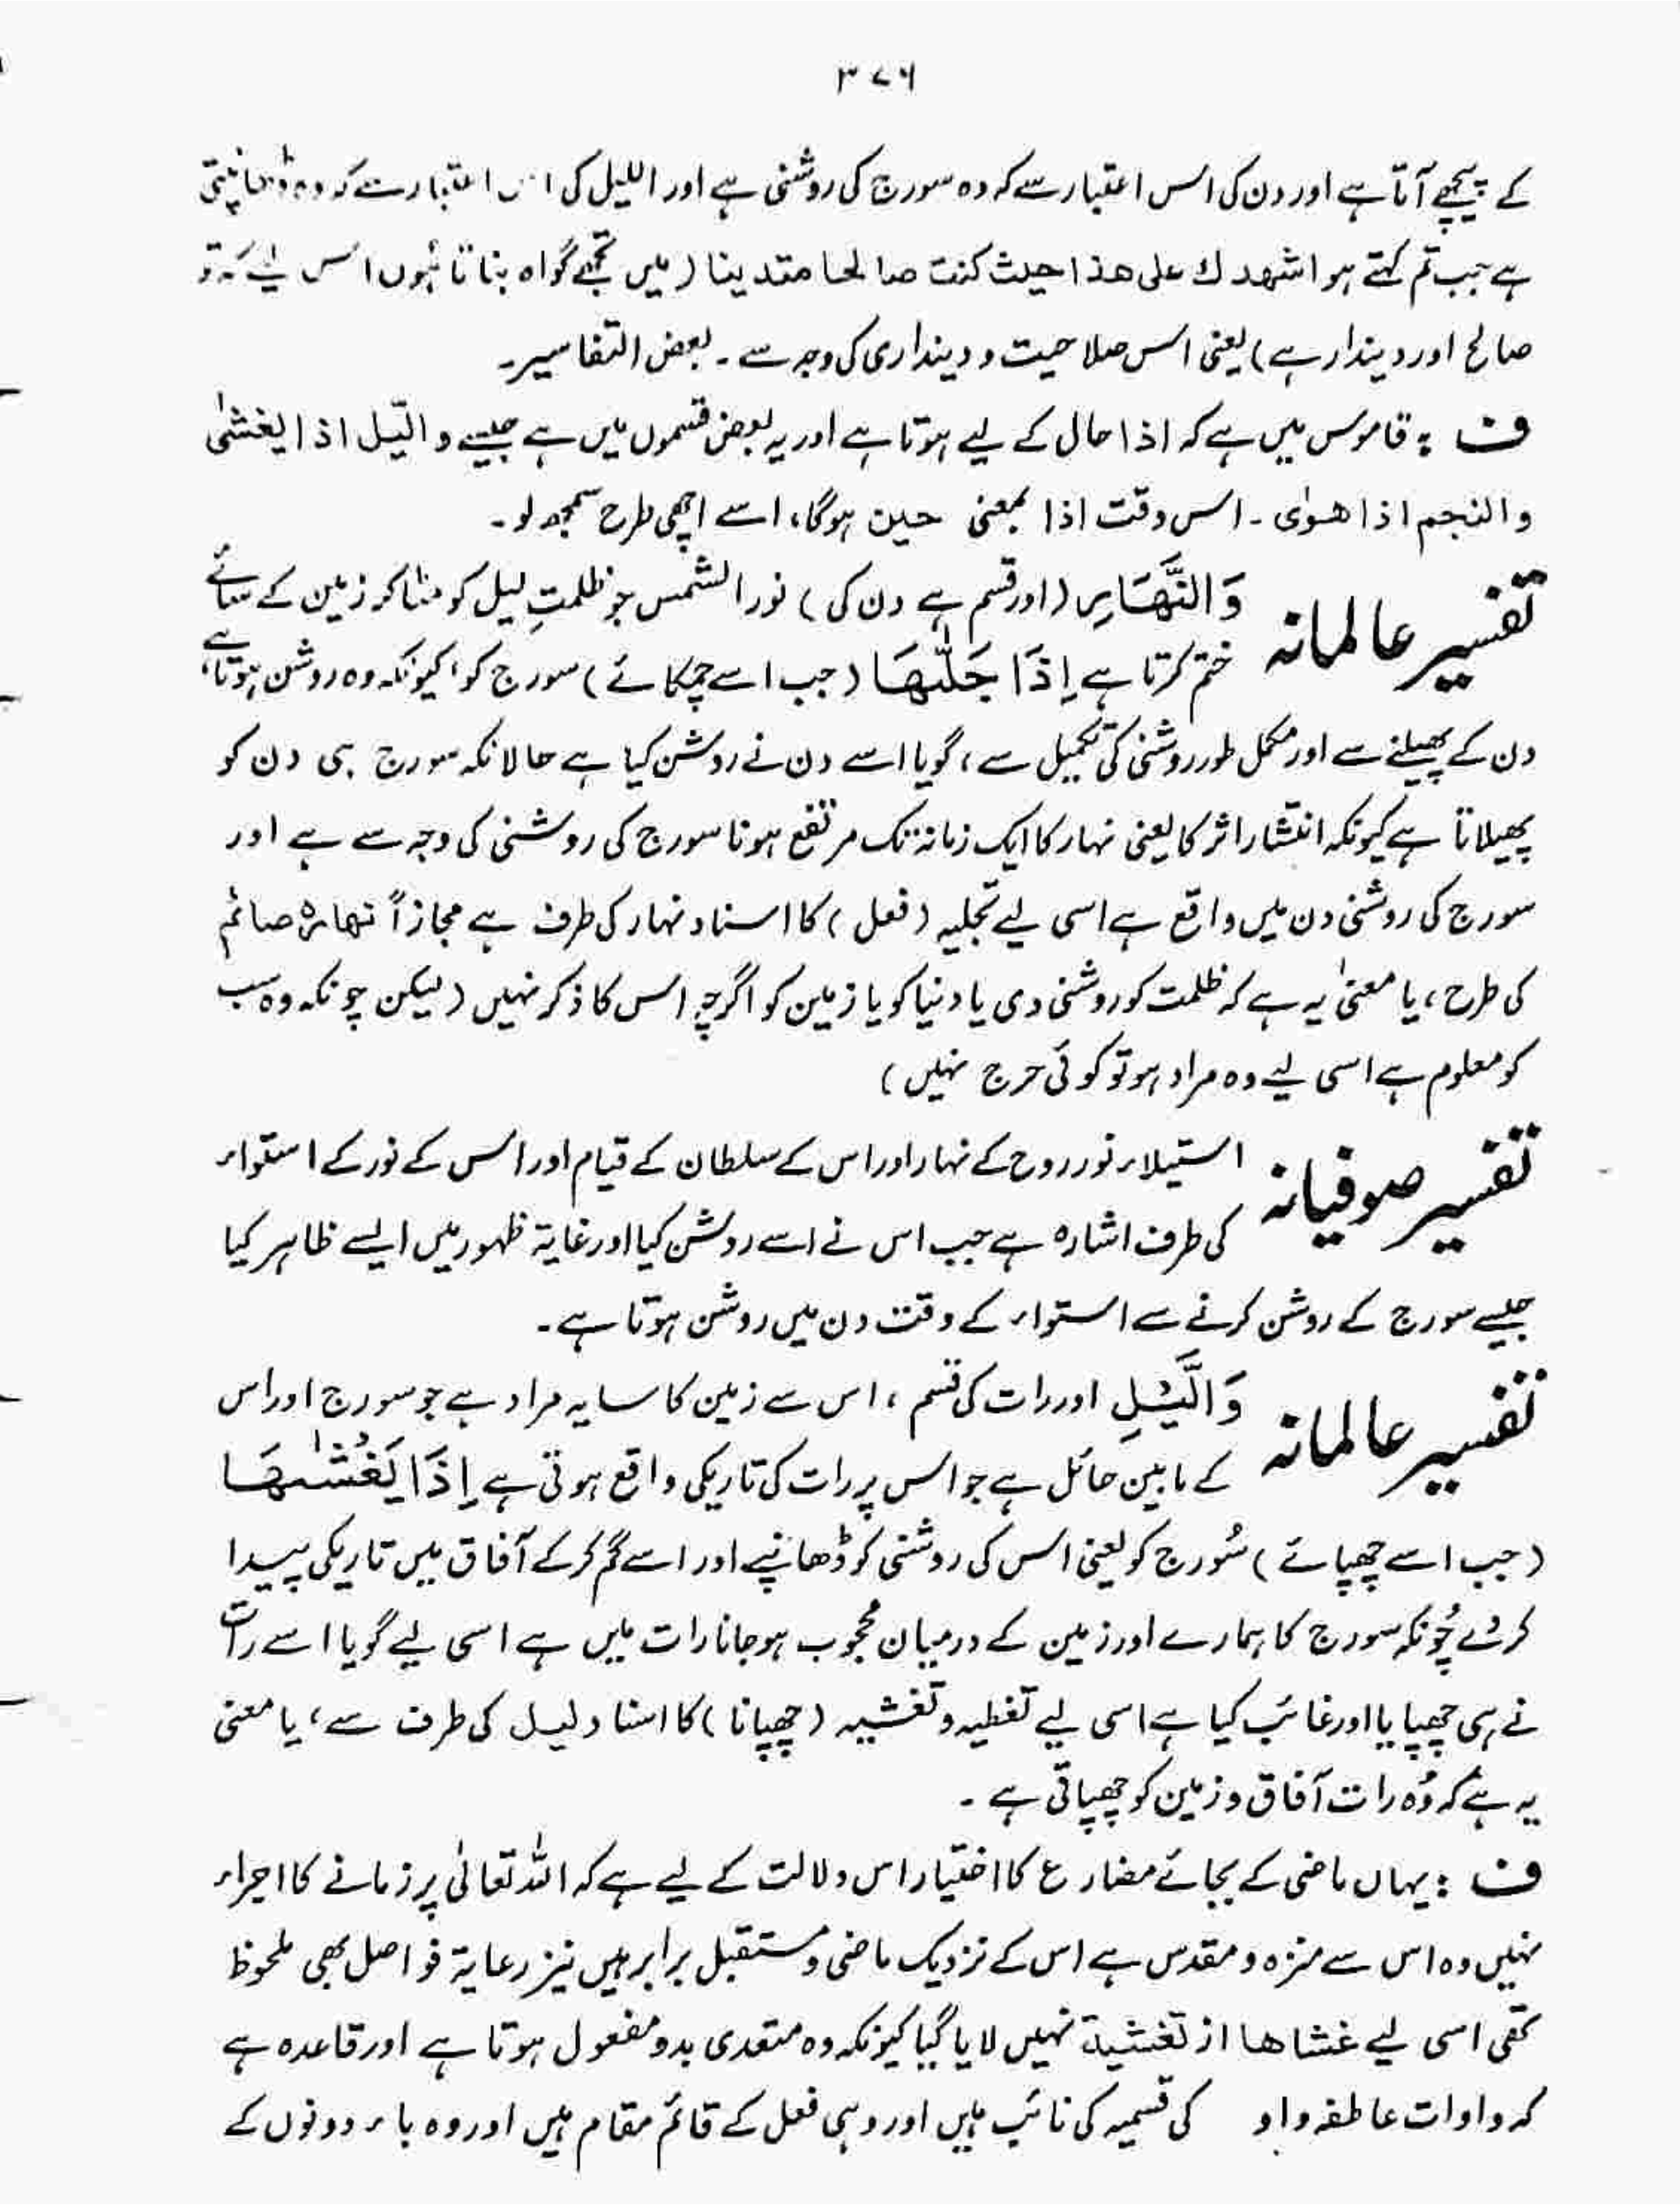 ۳۷۶
کے پیچھے آتا ہے اور دن کی اس اعتبار سے کہ وہ سورج کی روشنی ہے اور اللیل کی اس اعتبار سے کہ وہ ڈھانپتی
ہے جب تم کہتے ہو اشھدك علی ھذا حیث کنت صالحا متدینا (میں تجھے گواہ بناتا ہوں اس لیے کہ تو
صالح اور دیندار ہے) یعنی اس صلاحیت و دینداری کی وجہ سے ۔ بعض التفاسیر ۔
ف : قاموس میں ہے کہ اذا حال کے لیے ہوتا ہے اور یہ بعض قسموں میں ہے جیسے والیل اذا یغشیٰ
والنجم اذا ھویٰ ۔ اس وقت اذا بمعنی حین ہوگا ، اسے اچھی طرح سمجھ لو ۔
تفسیر عالمانہ وَالنَّھَارِ (اور قسم ہے دن کی) نور الشمس جو ظلمتِ لیل کو مٹا کر زمین کے سائے
ختم کرتا ہے اِذَا جَلّٰىھَا (جب اسے چمکائے) سورج کو ، کیونکہ وہ روشن ہوتا ہے
دن کے پھیلنے سے اور مکمل طور روشنی کی تکمیل سے ، گویا اسے دن نے روشن کیا ہے حالانکہ سورج ہی دن کو
پھیلاتا ہے کیونکہ انتشار اثر کا یعنی نہار کا ایک زمانہ تک مرتفع ہونا سورج کی روشنی کی وجہ سے ہے اور
سورج کی روشنی دن میں واقع ہے اسی لیے تجلیہ (فعل) کا اسناد نہار کی طرف ہے مجازاً نھارہ صائم
کی طرح ، یا معنیٰ یہ ہے کہ ظلمت کو روشنی دی یا دنیا کو یا زمین کو اگرچہ اس کا ذکر نہیں (لیکن چونکہ وہ سب
کو معلوم ہے اسی لیے وہ مراد ہو تو کوئی حرج نہیں)
تفسیر صوفیانہ استیلاء نور روح کے نہار اور اس کے سلطان کے قیام اور اس کے نور کے استواء
کی طرف اشارہ ہے جب اس نے اسے روشن کیا اور غایۃ ظہور میں ایسے ظاہر کیا
جیسے سورج کے روشن کرنے سے استواء کے وقت دن میں روشن ہوتا ہے ۔
تفسیر عالمانہ وَالَّیْلِ اور رات کی قسم ، اس سے زمین کا سایہ مراد ہے جو سورج اور اس
کے مابین حائل ہے جو اس پر رات کی تاریکی واقع ہوتی ہے اِذَا یَغْشٰىھَا
(جب اسے چھپائے) سُورج کو یعنی اس کی روشنی کو ڈھانپے اور اسے گم کر کے آفاق میں تاریکی پیدا
کردے چُونکہ سورج کا ہمارے اور زمین کے درمیان محجوب ہو جانا رات میں ہے اسی لیے گویا اسے رات
نے ہی چھپایا اور غائب کیا ہے اسی لیے تغطیہ و تغشیہ (چھپانا) کا اسناد لیل کی طرف سے ، یا معنی
یہ ہے کہ وُہ رات آفاق و زمین کو چھپاتی ہے ۔
ف : یہاں ماضی کے بجائے مضارع کا اختیار اس دلالت کے لیے ہے کہ اللہ تعالیٰ پر زمانے کا اجراء
نہیں وہ اس سے منزہ و مقدس ہے اس کے نزدیک ماضی و مستقبل برابر ہیں نیز رعایۃ فواصل بھی ملحوظ
تھی اسی لیے غشاھا از تغشیۃ نہیں لایا گیا کیونکہ وہ متعدی بدو مفعول ہوتا ہے اور قاعدہ ہے
کہ واوات عاطفہ واو کی قسمیہ کی نائب ہیں اور وہی فعل کے قائم مقام ہیں اور وہ باء دونوں کے